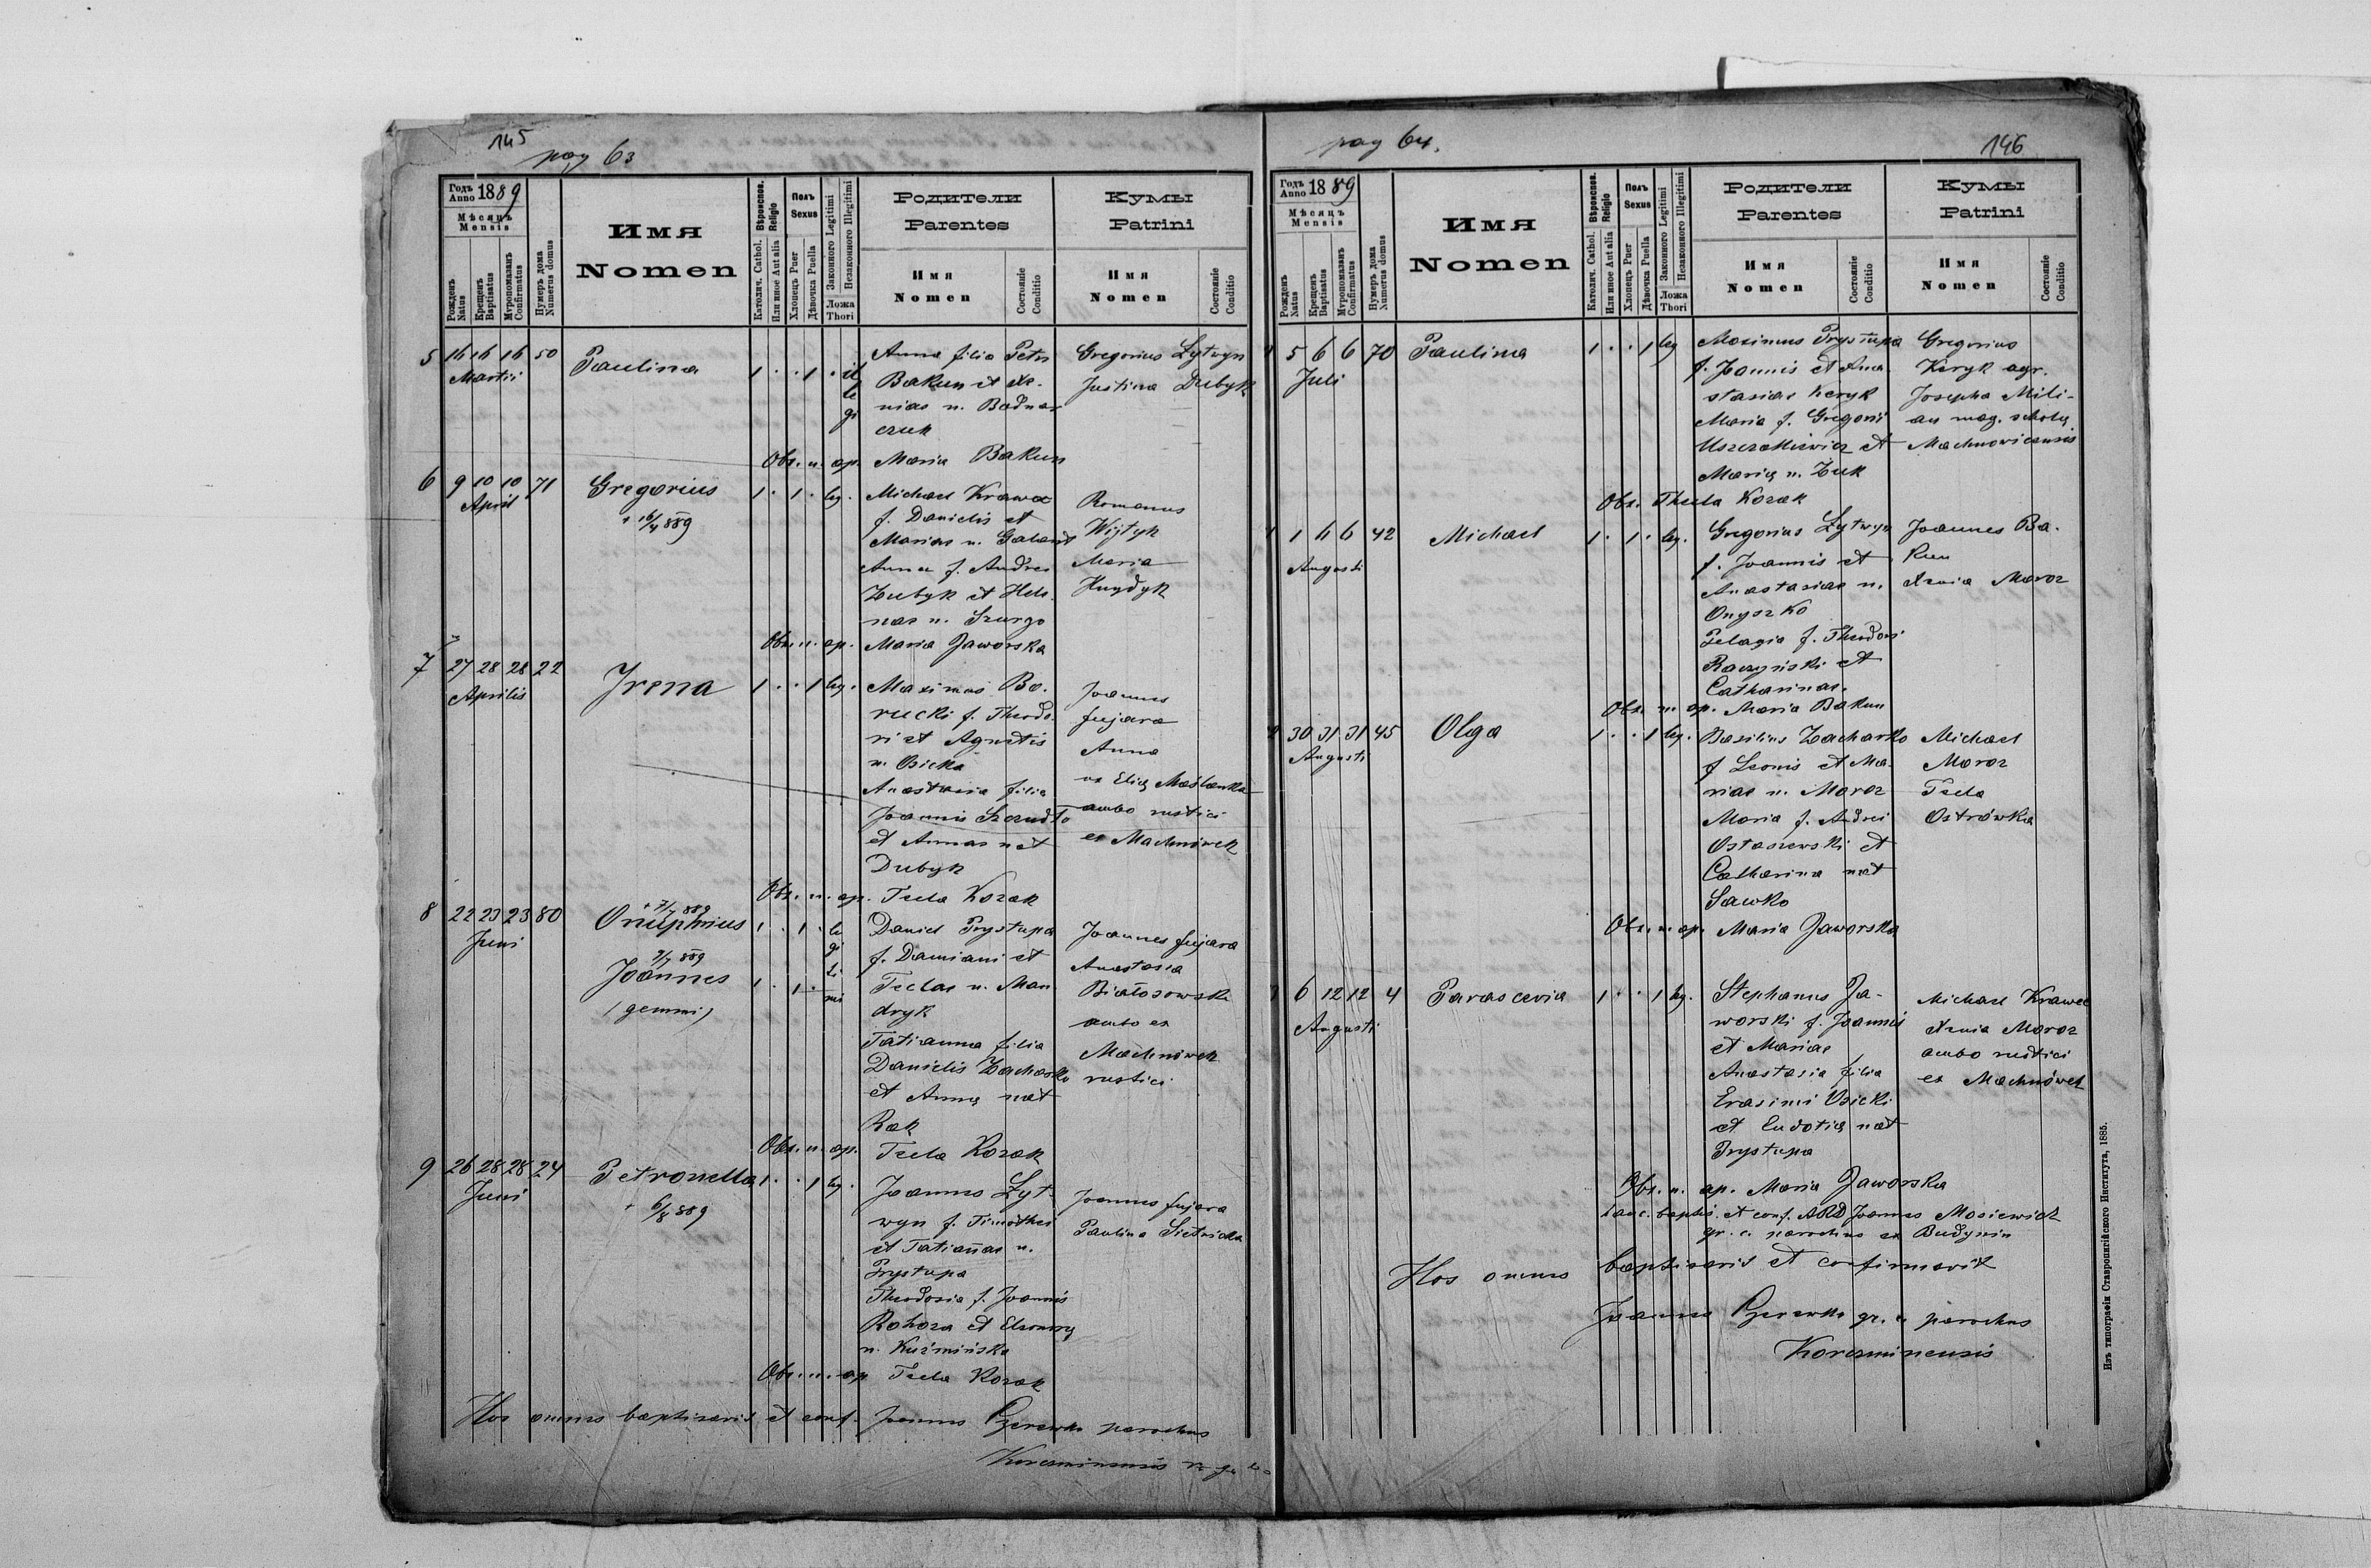 145
pag 63
Годъ Anno 1889
Мѣсяцъ Mensis
Рожденъ Natus
Крещенъ Baptisatus
Муропомазанъ Confirmatus
Нумеръ дома Numerus domus
Имя
Nomen
Вѣроисповѣд. Religio
Католич. Cathol.
Или иное Aut alia
Полъ Sexus
Хлопецъ Puer
Дѣвочка Puella
Законного Legitimi
Незаконного Illegitimi
Ложа Thori
Родители
Parentes
Имя
Nomen
Состояніе Conditio
Кумы
Patrini
Имя
Nomen
Состояніе Conditio
5 16 16 16 50 Paulina 1 . . 1 . il
le
gi
Martii
Anna filia Petri
Bakun et Xe-
nias n. Bodnar
czuk
Gregorius Lytwyn
Justina Dubyk
Obs. n. ap. Maria Bakun
6 9 10 10 71 Gregorius 1 . 1 . leg.
April
+ 16/4 889
Michael Krawec
f. Danielis et
Mariae n. Galand
Anna f. Andrei
Zubyk et Hele-
nae n. Szurgo
Romanus
Wijtyk
Maria
Hnydyk
Obs. n. ap. Maria Jaworska
7 27 28 28 22 Irena 1 . . 1 leg.
Aprilis
Maximus Bo-
rucki f. Theodo-
ri et Agnetis
n. Osicka
Anastasia filia
Joannis Szandlo
et Annae nat
Dubyk
Joannes
fujara
Anna
ux Elię Maślanka
ambo rustici
ex Machnówek
Obs. n. ap. Tecla Kozak
8 22 23 23 80 Onuphrius 1 . 1 . le
gi
ti
mi
Juni
+ 7/7 889
9/7 889
Joannes 1 . 1 .
(gemmi)
Daniel Prystupa
f. Damiani et
Teclae n. Man-
dryk
Tatianna filia
Danielis Zacharko
et Annę nat
Rak
Joannes fujara
Anastasia
Białosowska
ambo ex
Machnówek
rustici
Obs. n. ap. Tecla Kozak
9 26 28 28 24 Petronella 1 . . 1 leg.
Juni
+ 6/8 889
Joannes Lyt-
wyn f. Timothei
et Tatiannae n.
Prystupa
Theodosia f. Joannis
Rohoza et
n. Kuźmińska
Joannes fujara
Paulina
Obs. n. ap Tecla Kozak
Hos omnes baptisavit et conf. Joannes parochus
Korczminensis
pag 64.
146
Годъ Anno 1889
Мѣсяцъ Mensis
Рожденъ Natus
Крещенъ Baptisatus
Муропомазанъ Confirmatus
Нумеръ дома Numerus domus
Имя
Nomen
Вѣроисповѣд. Religio
Католич. Cathol.
Или иное Aut alia
Полъ Sexus
Хлопецъ Puer
Дѣвочка Puella
Законного Legitimi
Незаконного Illegitimi
Ложа Thori
Родители
Parentes
Имя
Nomen
Состояніе Conditio
Кумы
Patrini
Имя
Nomen
Состояніе Conditio
5 6 6 70 Paulina 1 . . 1 leg
Juli
Maximus Prystupa
f. Joannis et Ana-
stasiae Keryk
Maria f. Gregorii
et
Marię n. Żuk
Gregorius
Keryk agr.
Josepha Mili-
an mag. scholę
Machnovicensis
Obs. Thecla Kozak
1 6 6 42 Michael 1 . 1 . leg.
Augusti
Gregorius Lytwyn
f. Joannis et
Anastasiae n.
Onyszko
Pelagia f. Theodori
Raczyński et
Catharinae.
Joannes Ba-
kun
Xenia Moroz
Obs. n. ap. Maria Bakun
30 31 31 45 Olga 1 . . 1 leg.
Augusti
Basilius Zacharko
f Leonis et Ma-
riae n. Moroz
Maria f. Andrei
Ostaszewski et
Catharina nat
Sawko
Michael
Moroz
Tecla
Ostrówka
Obs. n. ap. Maria Jaworska
6 12 12 4 Parascevia 1 . . 1 leg.
Augusti
Stephanus Ja-
worski f. Joannis
et Mariae
Anastasia filia
Erasimi Osicki
et Eudotię nat
Prystupa
Michael Krawec
Xenia Moroz
ambo rustici
ex Machnówek
Obs. n. ap. Maria Jaworska
Hanc baptis. et conf. ARD Joannes Mosiewicz
gr. c. parochus ex Budynin
Hos omnes baptisavit et confirmavit
Joannes gr. c. parochus
Korczminensis
Изъ типографіи Ставропигійского Института, 1885.